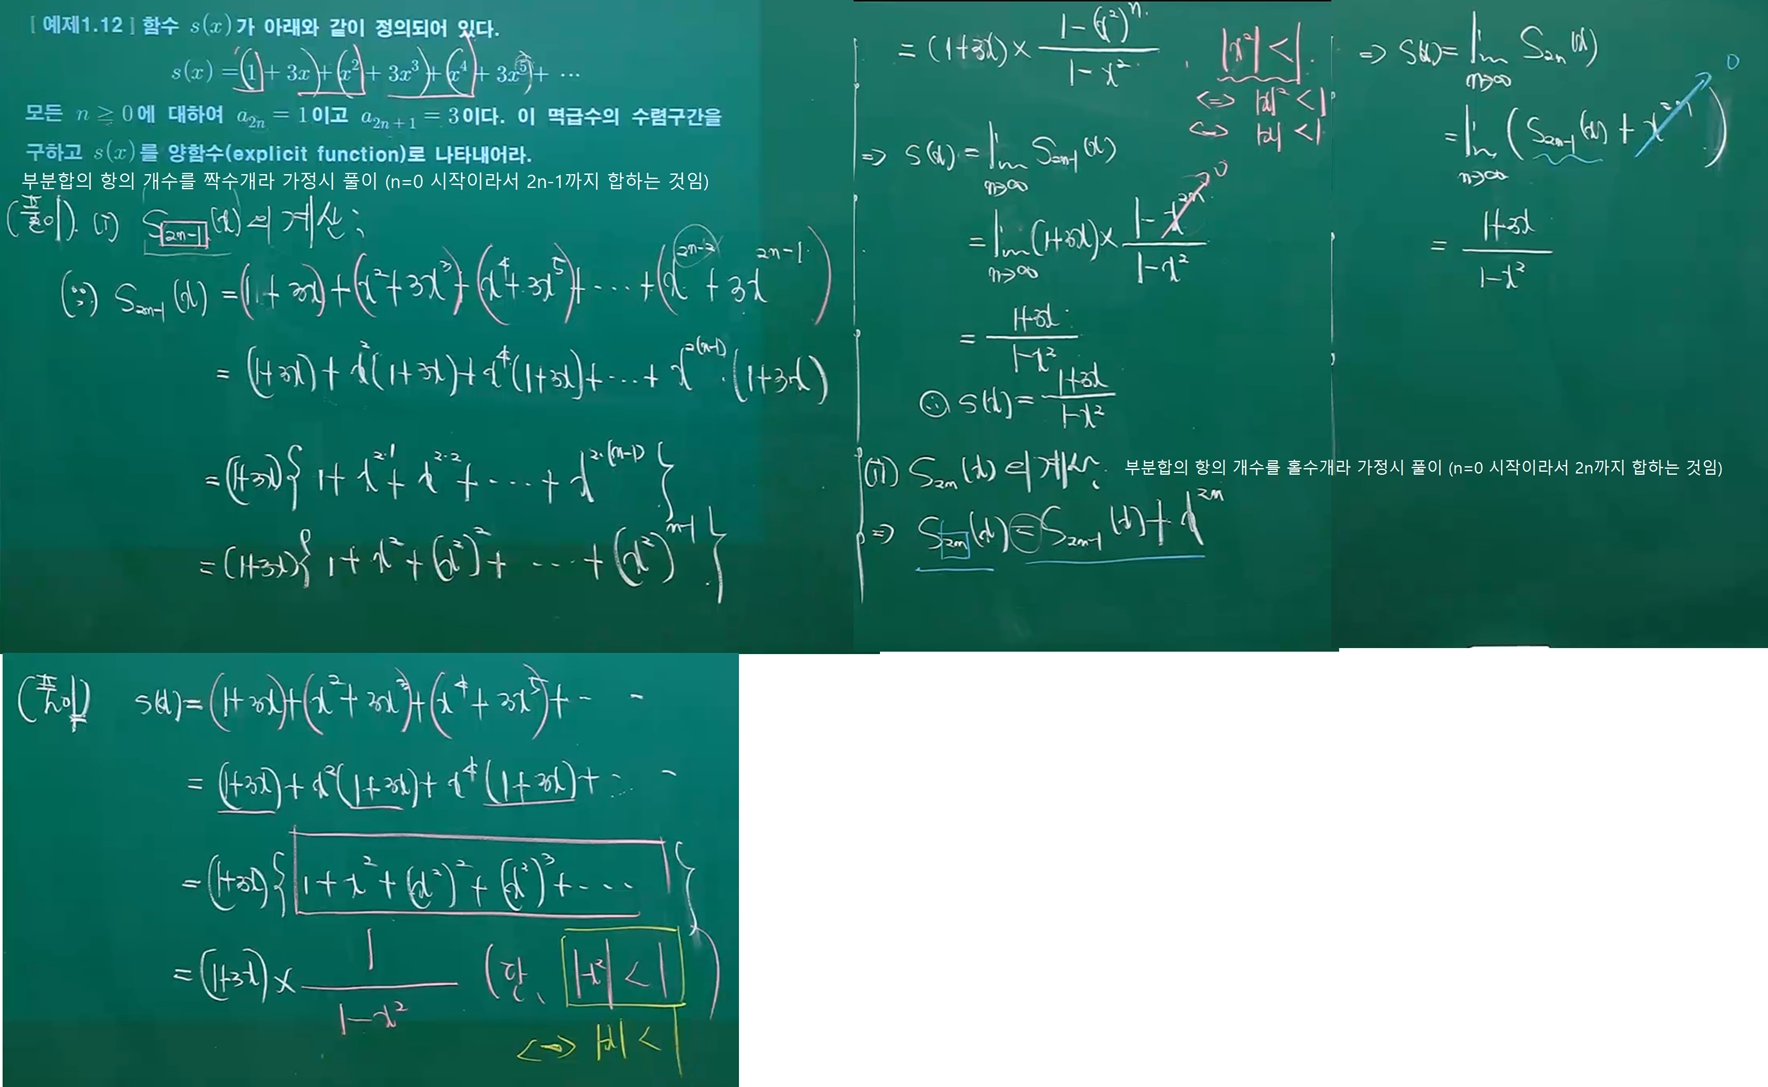 [예제1.12] 함수 s(x)가 아래와 같이 정의되어 있다.
s(x) = (1 + 3x) + (x² + 3x³) + (x⁴ + 3x⁵) + ⋯
모든 n ≥ 0에 대하여 a₂ₙ = 1이고 a₂ₙ₊₁ = 3이다. 이 멱급수의 수렴구간을
구하고 s(x)를 양함수(explicit function)로 나타내어라.
부분합의 항의 개수를 짝수개라 가정시 풀이 (n=0 시작이라서 2n-1까지 합하는 것임)
(풀이). (i) S₂ₙ₋₁(x)의 계산;
(∵) S₂ₙ₋₁(x) = (1+3x)+(x²+3x³)+(x⁴+3x⁵)+⋯+(x^{2n-2}+3x^{2n-1})
= (1+3x)+x²(1+3x)+x⁴(1+3x)+⋯+x^{2(n-1)}·(1+3x)
= (1+3x){1+x^{2·1}+x^{2·2}+⋯+x^{2·(n-1)}}
= (1+3x){1+x²+(x²)²+⋯+(x²)^{n-1}}
= (1+3x) × (1-(x²)ⁿ)/(1-x²) , |x²|<1
⟺ |x|²<1
⟺ |x|<1
⇒ s(x) = lim_{n→∞} S₂ₙ₋₁(x)
= lim_{n→∞} (1+3x) × (1-x^{2n})/(1-x²) 0
= (1+3x)/(1-x²)
∴ s(x) = (1+3x)/(1-x²)
(ii) S₂ₙ(x)의 계산; 부분합의 항의 개수를 홀수개라 가정시 풀이 (n=0 시작이라서 2n까지 합하는 것임)
⇒ S₂ₙ(x) = S₂ₙ₋₁(x) + x^{2n}
⇒ s(x) = lim_{n→∞} S₂ₙ(x)
= lim_{n→∞} (S₂ₙ₋₁(x) + x^{2n}) 0
= (1+3x)/(1-x²)
(풀이) s(x) = (1+3x)+(x²+3x³)+(x⁴+3x⁵)+⋯
= (1+3x)+x²(1+3x)+x⁴(1+3x)+⋯
= (1+3x){1+x²+(x²)²+(x²)³+⋯}
= (1+3x) × 1/(1-x²) (단, |x²|<1)
⟺ |x|<1